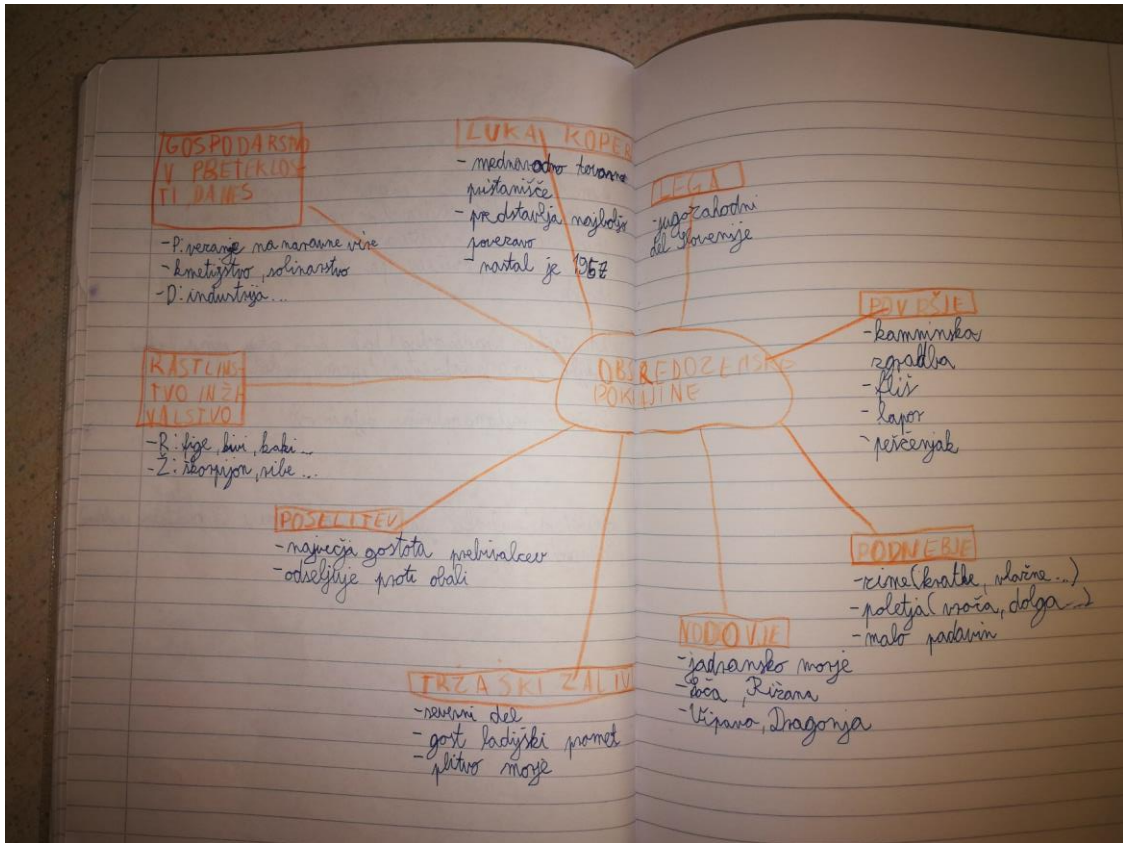 GOSPODARSTVO
V PRETEKLOS-
TI DANES
-P: vezanje na naravne vire
-kmetijstvo, solinarstvo
-D: industrija...
LUKA KOPER
- mednarodno tovorno
pristanišče
- predstavlja najboljšo
povezavo
- nastal je 1957
LEGA
-jugozahodni
del Slovenije
POVRŠJE
-kamninska
zgradba
-fliš
-lapor
-peščenjak
OBSREDOZEMSKE
POKRAJINE
RASTLINS-
TVO IN ŽI
VALSTVO
-R: fige, kivi, kaki...
-Ž: škorpijon, ribe...
POSELITEV
-največja gostota prebivalcev
-odseljuje proti obali
PODNEBJE
-zime (kratke, vlažne...)
-poletja (vroča, dolga...)
-malo padavin
VODOVJE
-jadransko morje
-Soča, Rižana
-Vipava, Dragonja
TRŽAŠKI ZALIV
-severni del
-gost ladijski promet
- plitvo morje